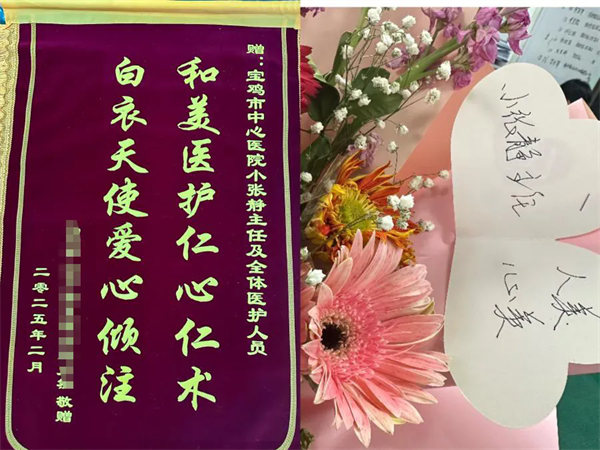 赠：宝鸡市中心医院小张静主任及全体医护人员
和美医护仁心仁术
白衣天使爱心倾注
敬赠
二零二五年二月
小张静主任
人美
心美